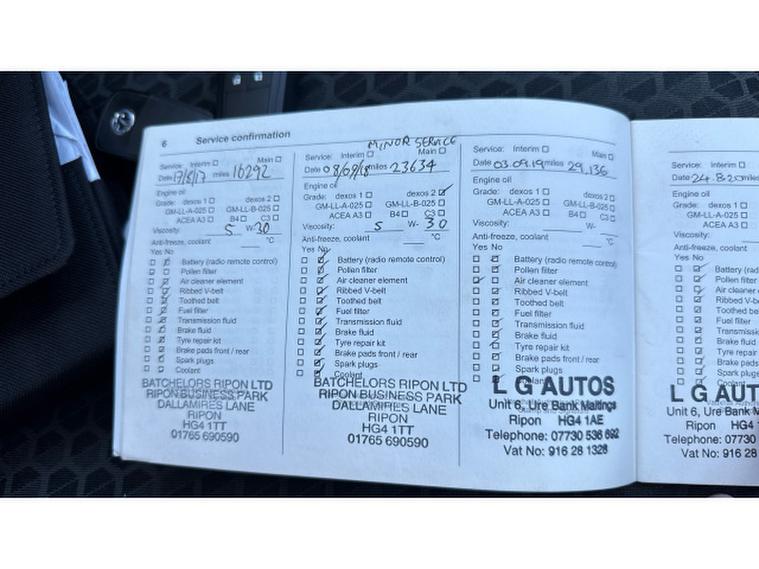 6 Service confirmation
Service: Interim ☐ Main ☐
Date 17/8/17 miles 16292
Engine oil
Grade: dexos 1 ☐ dexos 2 ☐
GM-LL-A-025 ☐ GM-LL-B-025 ☐
ACEA A3 ☐ B4 ☐ C3 ☐
Viscosity: 5 W- 30
Anti-freeze, coolant °C
Yes No
Battery (radio remote control)
Pollen filter
Air cleaner element
Ribbed V-belt
Toothed belt
Fuel filter
Transmission fluid
Brake fluid
Tyre repair kit
Brake pads front / rear
Spark plugs
Coolant
BATCHELORS RIPON LTD
RIPON BUSINESS PARK
DALLAMIRES LANE
RIPON
HG4 1TT
01765 690590
MINOR SERVICE
Service: Interim ☐ Main ☐
Date 08/09/18 miles 23634
Engine oil
Grade: dexos 1 ☐ dexos 2 ☑
GM-LL-A-025 ☐ GM-LL-B-025 ☐
ACEA A3 ☐ B4 ☐ C3 ☐
Viscosity: 5 W- 30
Anti-freeze, coolant °C
Yes No
Battery (radio remote control)
Pollen filter
Air cleaner element
Ribbed V-belt
Toothed belt
Fuel filter
Transmission fluid
Brake fluid
Tyre repair kit
Brake pads front / rear
Spark plugs
Coolant
BATCHELORS RIPON LTD
RIPON BUSINESS PARK
DALLAMIRES LANE
RIPON
HG4 1TT
01765 690590
Service: Interim ☐ Main ☐
Date 03.09.19 miles 29,136
Engine oil
Grade: dexos 1 ☐ dexos 2 ☐
GM-LL-A-025 ☐ GM-LL-B-025 ☐
ACEA A3 ☐ B4 ☐ C3 ☐
Viscosity: W-
Anti-freeze, coolant °C
Yes No
Battery (radio remote control)
Pollen filter
Air cleaner element
Ribbed V-belt
Toothed belt
Fuel filter
Transmission fluid
Brake fluid
Tyre repair kit
Brake pads front / rear
Spark plugs
L G AUTOS
Unit 6, Ure Bank Maltings
Ripon HG4 1AE
Telephone: 07730 536 692
Vat No: 916 28 1328
Service: Interim ☐
Date 24.8.20 miles
Engine oil
Grade: dexos 1 ☐
GM-LL-A-025 ☐
ACEA A3 ☐
Viscosity:
Anti-freeze, coolant
Yes No
Battery (rad
Pollen filter
Air cleaner
Ribbed V-b
Toothed be
Fuel filter
Transmissi
Brake fluid
Tyre repair
Brake pads
Spark plug
L G AUT
Unit 6, Ure Bank M
Ripon HG4
Telephone: 07730
Vat No: 916 28